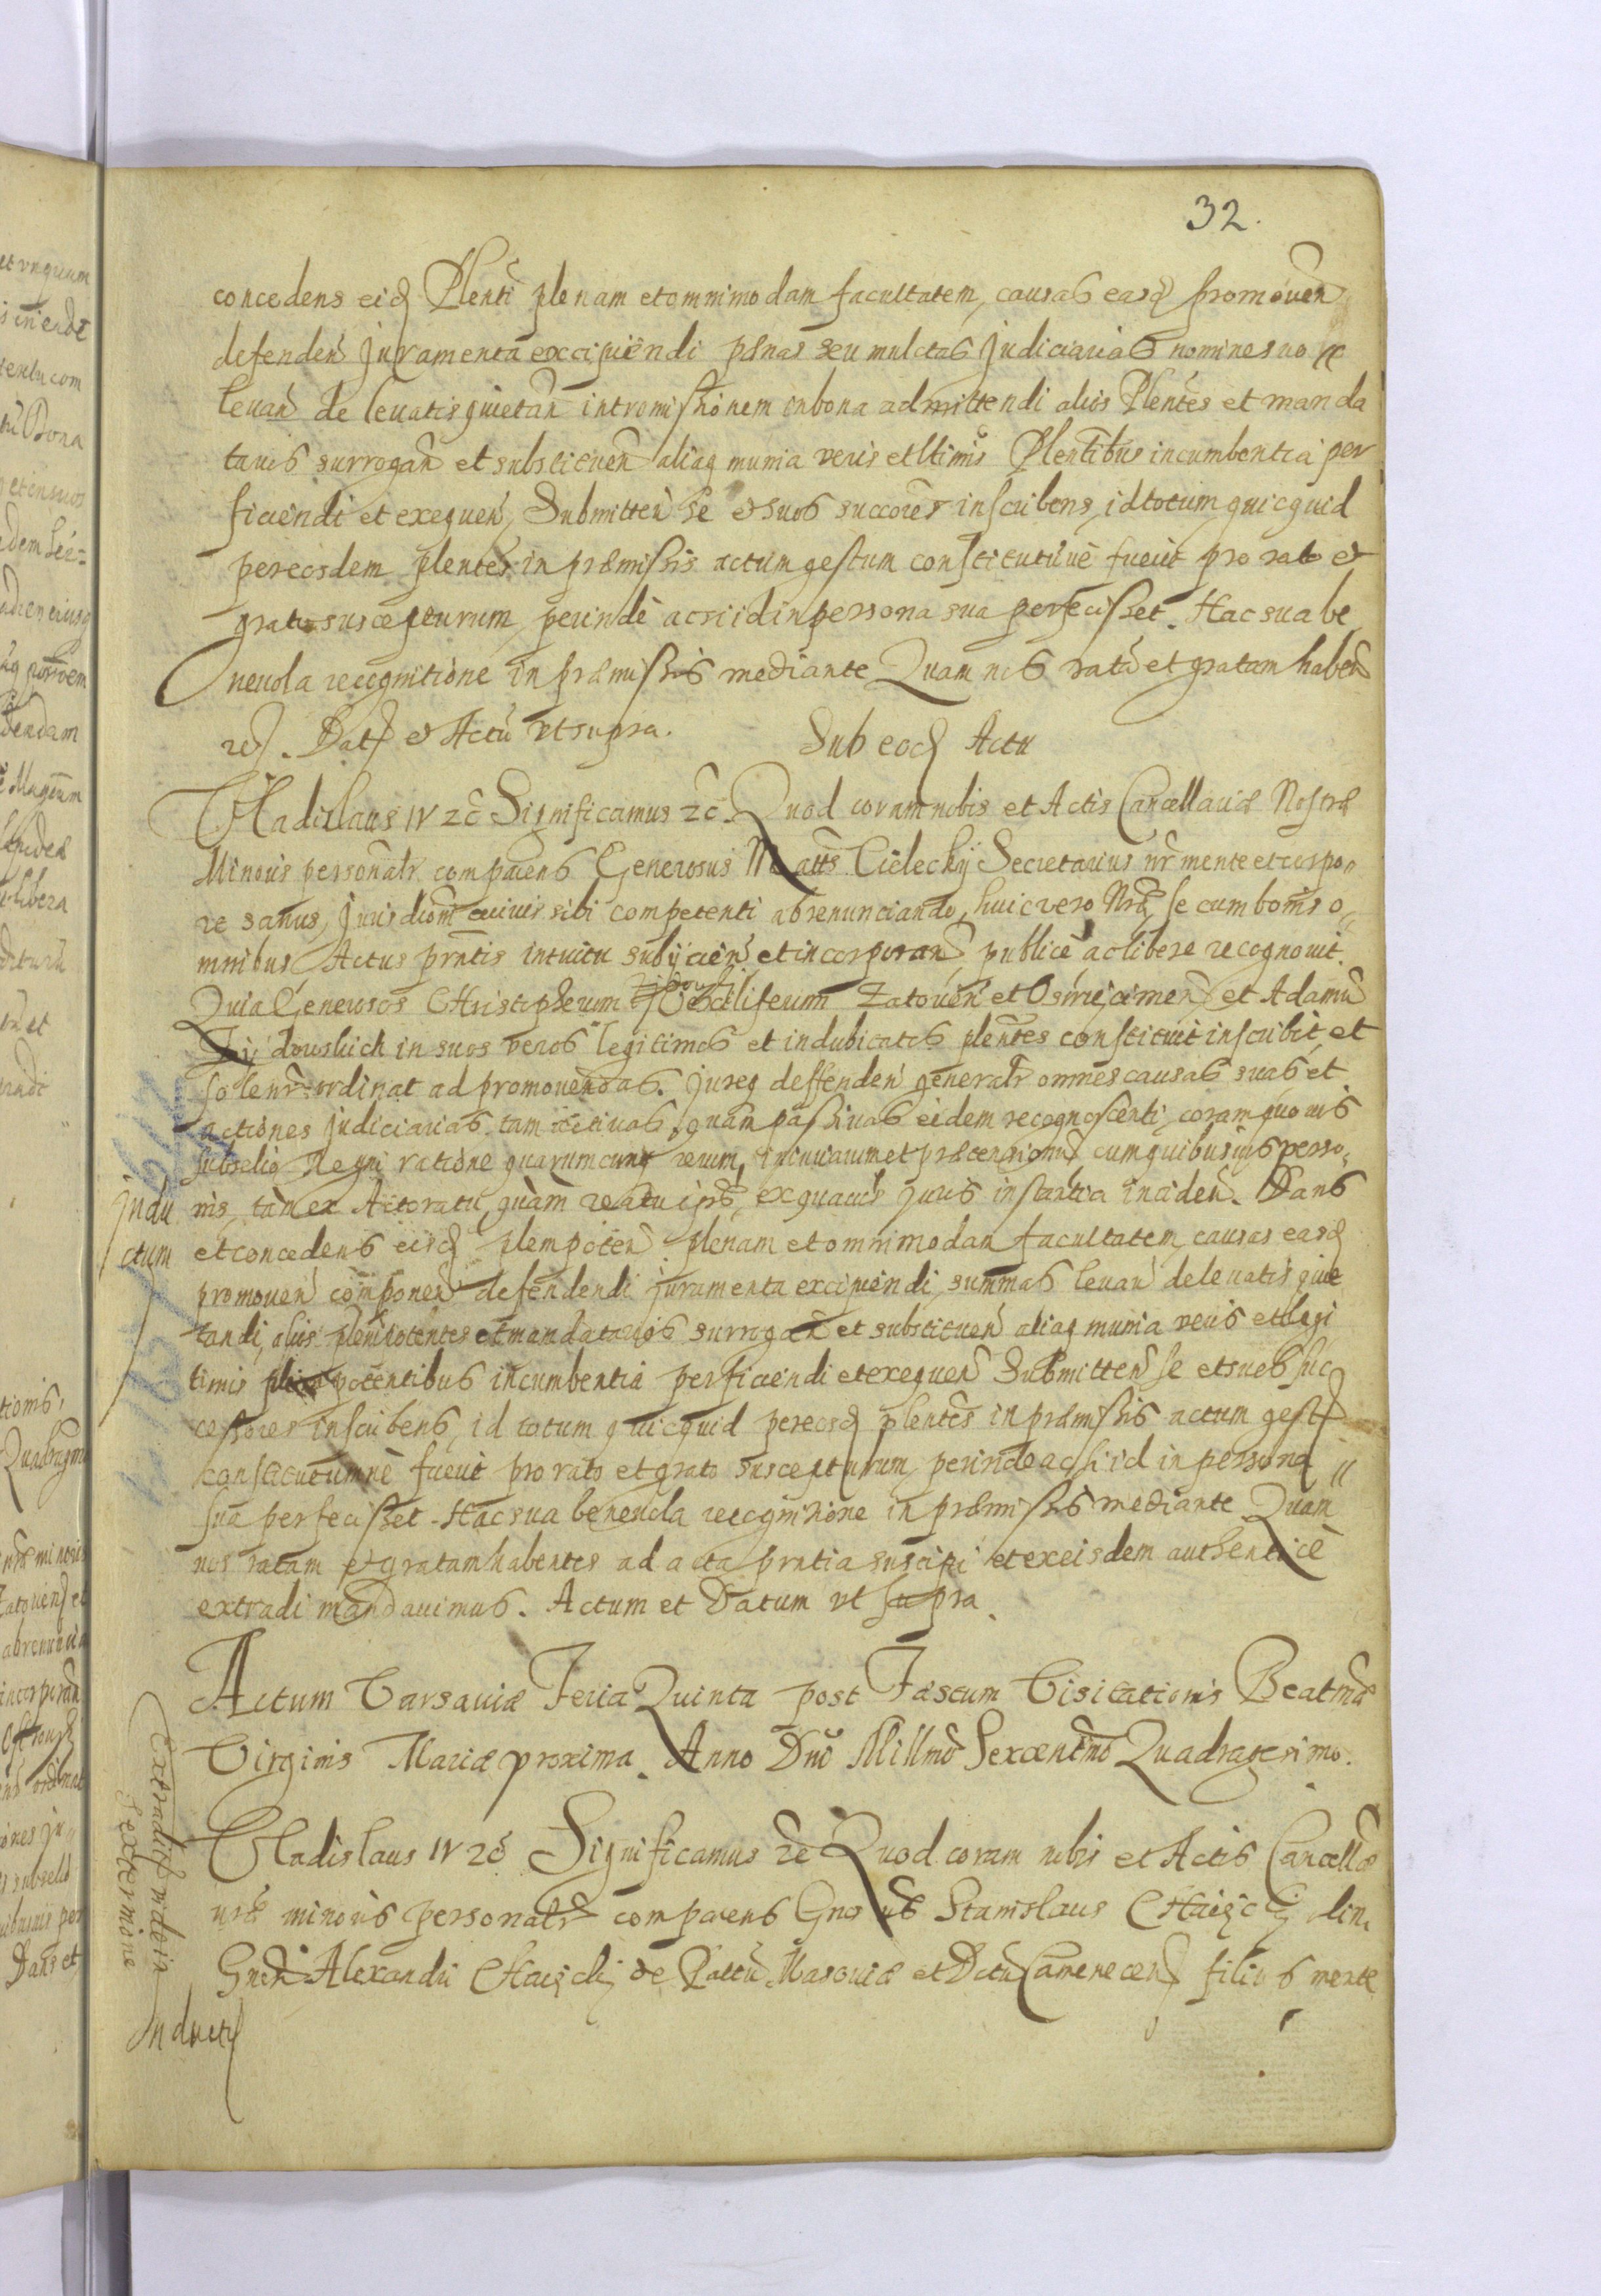 32.
concedens eidꝫ Plenti plenam et omnimodam facultatem, causas easdꝫ promouen
defenden Juramenta excipiendi pænas seu mulctas Judiciarias nomine suo
leuan de leuatis quietan intromissionem in bona admittendi alios Plentes et manda
tarios surrogan et substituen aliaq munia veris et ltimis Plentibus incumbentia per
ficiendi et exequen, Submitten se et suos succores inscribens, id totum quicquid
per eosdem plentes in præmissis actum gestum constitutumue fuerit pro rato et
grato suscepturum, perinde ac si id in persona sua perfecisset. Hac sua be
neuola recognitione in præmissis mediante Quam nos ratã et gratam haben
Datꝫ et Actũ vt supra.
Sub eodꝫ Actu
Vladislaus IV zc Significamus zc. Quod coram nobis et Actis Cancellariæ Nostræ
Minoris personalr comparens Generosus Cielecky Secretarius nr mente et corpo
re sanus, Jurisdioni cuiuis sibi competenti abrenunciando, huic vero Nræ, se cum bonis o
mnibus Actus prntis intuitu subijcien et incorporan, publicè ac libere recognouit.
Quia Generosos Christopherum Zatorien et Osmiecimen et Adamũ
in suos veros legitimos et indubitatos plentes constituit inscribit, et
solenr ordinat ad promouendas. Jureq deffenden generalr omnes causas suas et
actiones Judiciarias, tam actiuas, quam passiuas eidem recognoscenti, coram quouis
subselio Regni ratione quarumcunq rerum, iniuriarum et prætensionũ cum quibusuis perso
nis, tàm ex Actoratu, quàm reatu ipsꝰ, ex quauis Juris instantia inciden. Dans
et concedens eisdꝫ plempoten plenam et omnimodam facultatem, causas easdꝫ
promouen componen defendendi Juramenta excipiendi, summas leuan de leuatis quie
tandi, alios plenipotentes et mandatarios surrogan et substituen aliaq munia veris et legi
timis plenipotentibus incumbentia perficiendi et exequen Submitten se et suos suc
cessores inscribens, id totum quicquid per eosdꝫ plentes in præmissis actum gestũ
constitutumuè fuerit pro rato et grato suscepturum, perinde ac si id in persona
sua perfecisset. Hac sua beneuola recognitione in præmissis mediante Quam
nos ratam et gratam habentes ad acta prntia suscipi et ex eisdem authenticè
extradi mandauimus. Actum et Datum vt supra.
Indu
ctum
Actum Varsauiæ Feria Quinta post Festum Visitationis Beatmæ
Virginis Mariæ proxima. Anno Dni Millmo Sexcentmo Quadragesimo.
Vladislaus IV zc Significamus zc Quod coram nobis et Actis Cancellæ
nræ minoris personalr comparens Gnosus Stanislaus olim
Gnedi Alexandri de Pallũ Masouiæ et Dctũ Camenecen filius mente
Extraditũ vide in
Sexternione
Inductũ